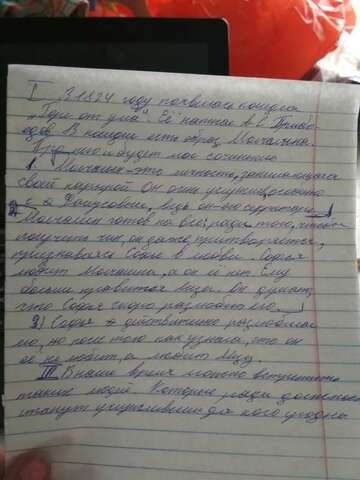 I В 1824 году появилась комедия
„Горе от ума“. Её написал А.С. Грибо-
едов. В комедии есть образ Молчалина.
Про мной будет мое сочинение
1. Молчалин – это личность, занимающаяся
своей карьерой. Он очень услужлив, особенно
с Фамусовым, ведь он его
2) Молчалин готов на все, ради того, чтобы
получить чин, он даже притворяется,
признаваясь Софье в любви. Софья
любит Молчалина, а он её нет. Ему
больше нравится Лиза. Он думает,
что Софья скоро разлюбит его.
3) Софья действительно разлюбила
его, но после того как узнала, что он
её не любит, а любит Лизу.
III В наше время можно встретить
таких людей. Которые ради достижения
станут услужливыми для кого угодно